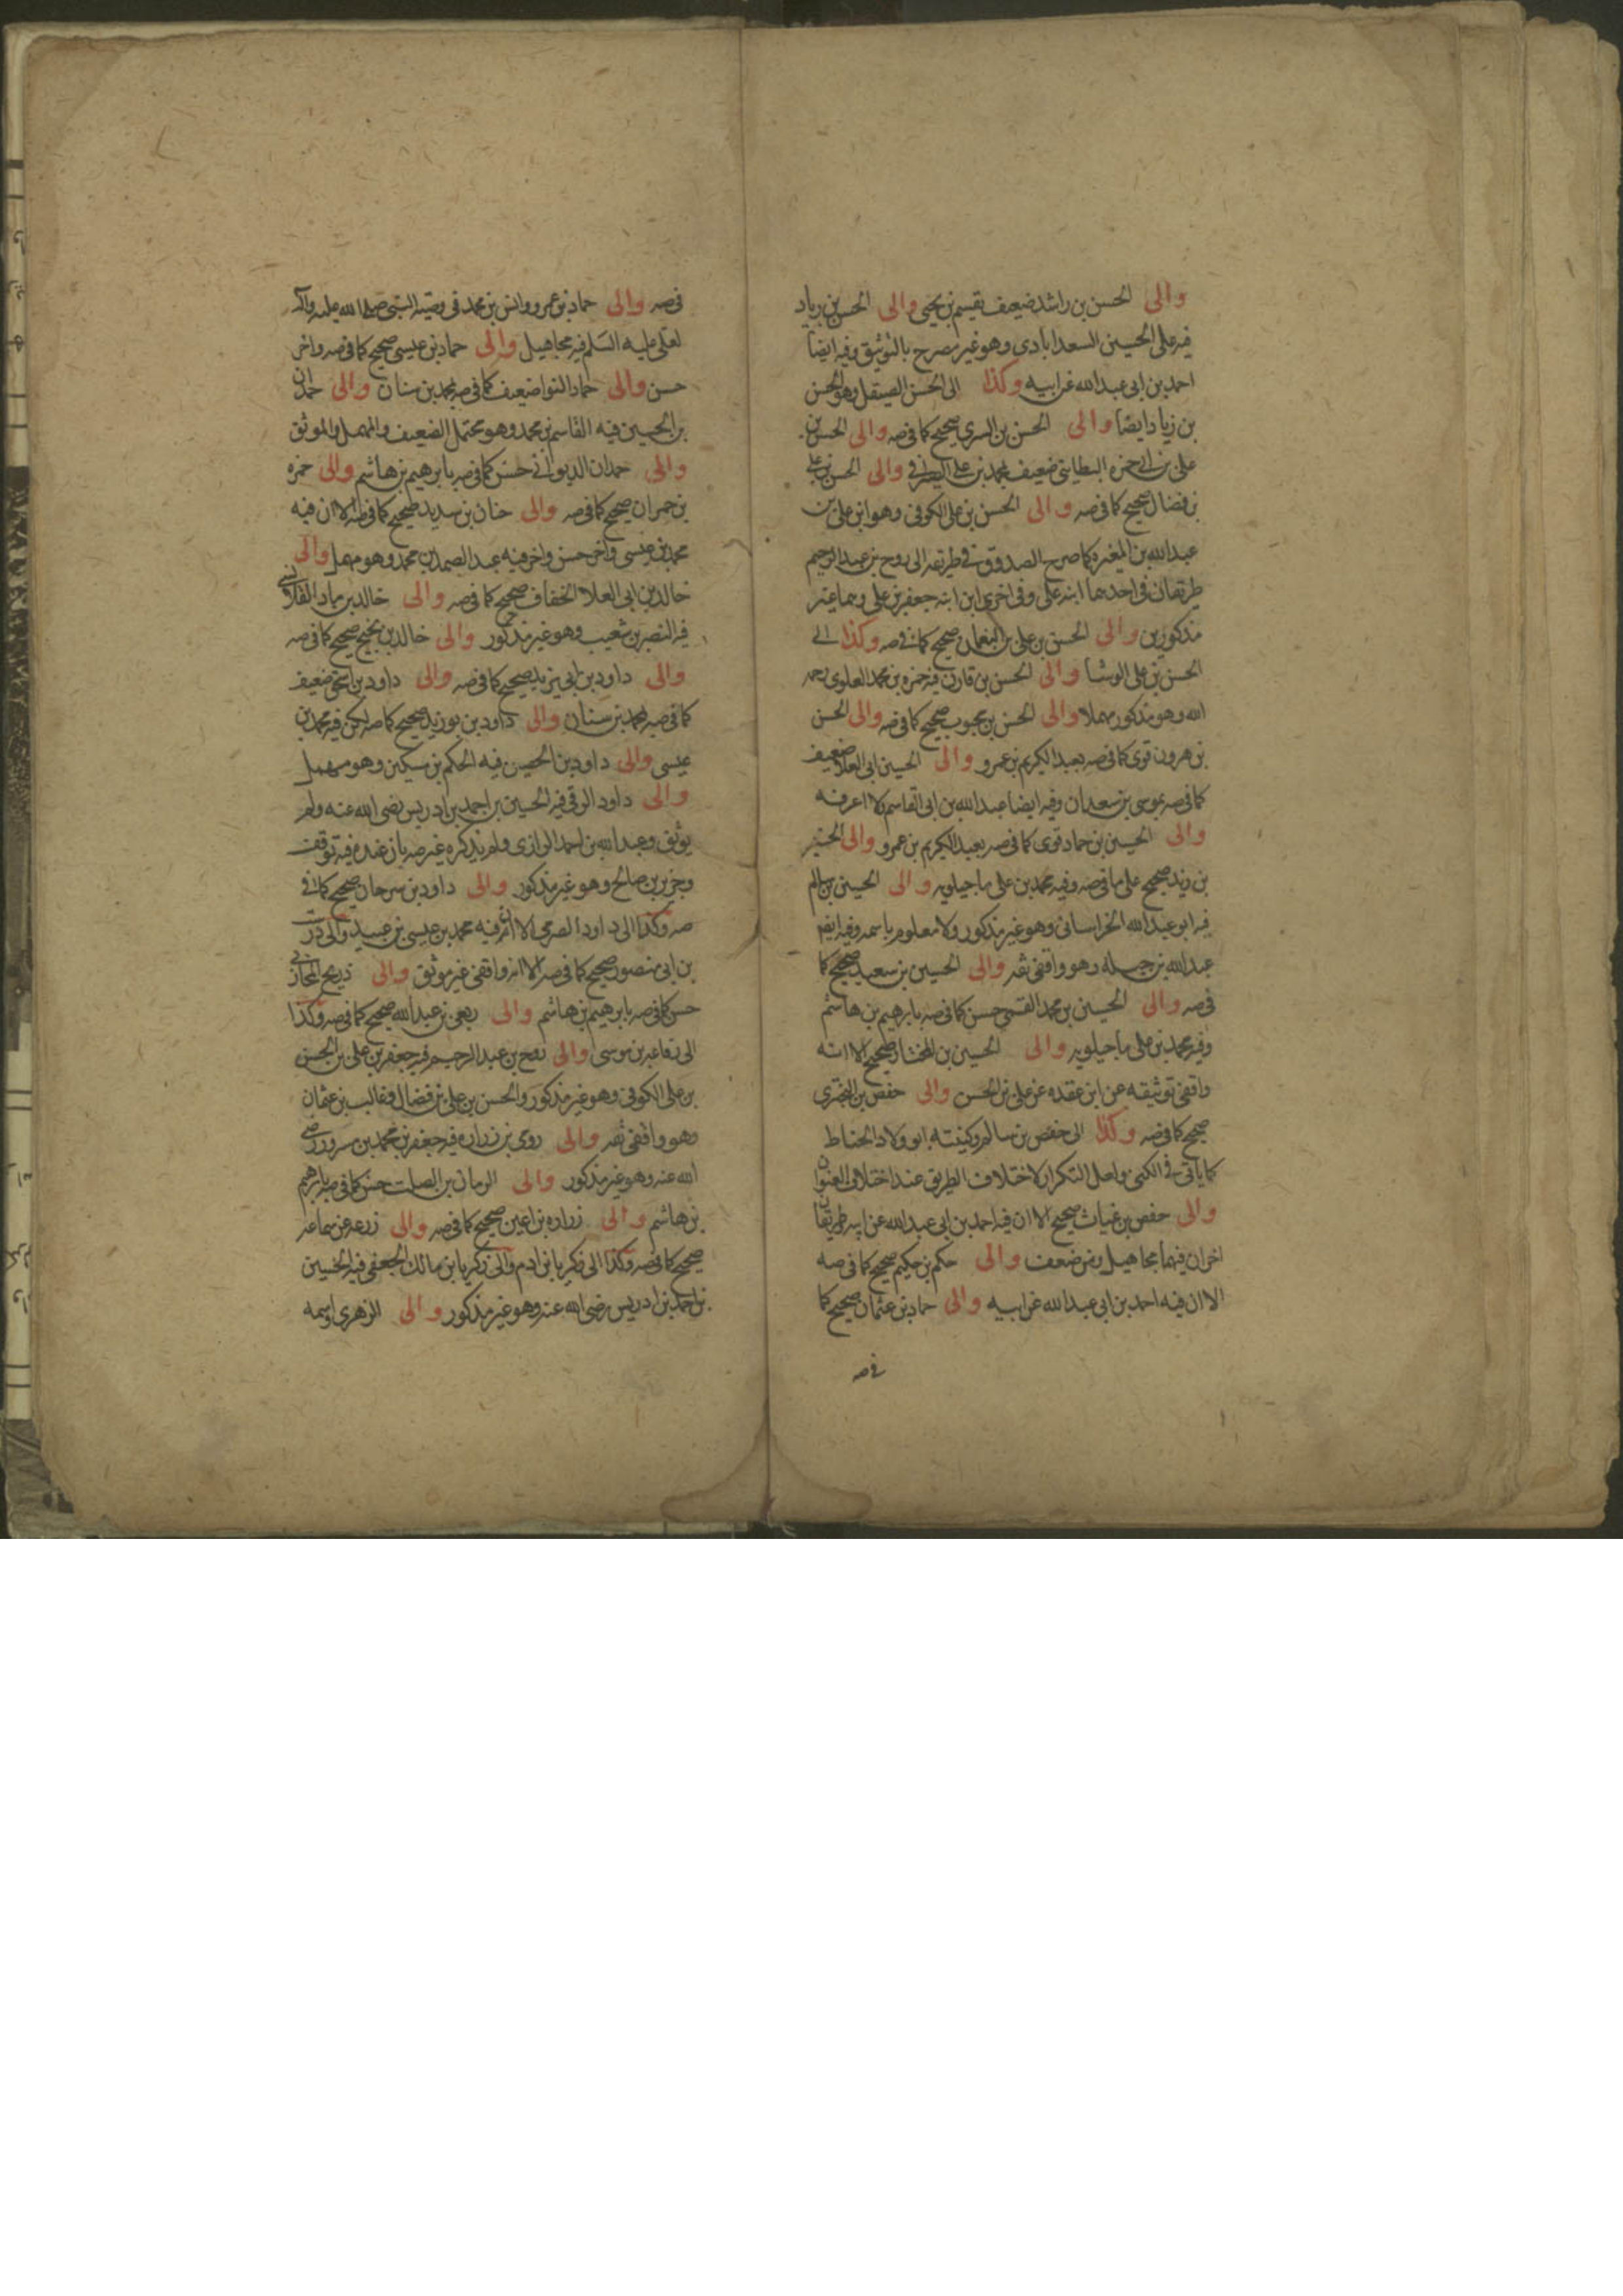 والى الحسن بن راشد ضعيف بقسيم بن يحيى والى الحسن بن زياد
فيه على الحسين السعدابادى وهو غير مصرح بالتوثيق وفيه ايضا
احمد بن ابى عبدالله عن ابيه وكذا الى الحسن الصيقل وهو الحسن
بن زياد ايضا والى الحسن بن السرى صحيح كما فى صه والى الحسن بن
على بن ابى حمزه البطاينى ضعيف بمحمد بن على الصيرفى والى الحسن بن على
بن فضال صحيح كما فى صه والى الحسن بن على الكوفى وهو ابن على بن
عبدالله بن المغيره كما صرح الصدوق فى طريقه الى روح بن عبدالرحيم
طريقان فى احدهما ابنه على وفى اخرى ابن ابنه جعفر بن على وهما غير
مذكورين والى الحسن بن على بن النعمان صحيح كما فى صه وكذا الى
الحسن بن على الوشا والى الحسن بن قارن فيه حمزه بن محمد العلوى رحمه
الله وهو مذكور مهملا والى الحسن بن محبوب صحيح كما فى صه والى الحسن
بن هرون قوى كما فى صه بعبد الكريم بن عمرو والى الحسين ابى العلا ضعيف
كما فى صه بموسى بن سعدان وفيه ايضا عبدالله بن ابى القاسم لا اعرفه
والى الحسين بن حماد قوى كما فى صه بعبد الكريم بن عمرو والى الحسين
بن زيد صحيح على ما فى صه وفيه محمد بن على ماجيلويه والى الحسين بن سالم
فيه ابو عبدالله الخراسانى وهو غير مذكور ولا معلوم باسمه وفيه ايضا
عبدالله بن جبله وهو واقفى ثقه والى الحسين بن سعيد صحيح كما
فى صه والى الحسين بن محمد القمى حسن كما فى صه بابرهيم بن هاشم
وفيه محمد بن على ماجيلويه والى الحسين بن المختار صحيح الا انه
واقفى توثيقه عن ابن عقده عن على بن الحسن والى حفص بن البخترى
صحيح كما فى صه وكذا الى حفص بن سالم وكنيته ابو ولاد الحناط
كما ياتى فى الكنى ولعل التكرار لاختلاف الطريق عند اختلاف العنوان
والى حفص بن غياث صحيح الا ان فيه احمد بن ابى عبدالله عن ابيه طريقان
اخران فيهما مجاهيل ومن ضعف والى حكم بن حكيم صحيح كما فى صه
الا ان فيه احمد بن ابى عبدالله عن ابيه والى حماد بن عثمان صحيح كما
فى صه
فى صه والى حماد بن عمرو وانس بن محمد فى وصيه النبى صلى الله عليه واله
لعلى عليه السلم فيه مجاهيل والى حماد بن عيسى صحيح كما فى صه واخر
حسن والى حماد النوا ضعيف كما فى صه بمحمد بن سنان والى حمدان
بن الحسين فيه القاسم بن محمد وهو محتمل الضعيف والمهمل والموثق
والى حمدان الديوانى حسن كما فى صه بابرهيم بن هاشم والى حمزه
بن حمران صحيح كما فى صه والى حنان بن سدير صحيح كما فى صه الا ان فيه
محمد بن عيسى واخر حسن واخر فيه عبدالصمد بن محمد وهو مهمل والى
خالد بن ابى العلا الخفاف صحيح كما فى صه والى خالد بن ماد القلانسى
فيه النضر بن شعيب وهو غير مذكور والى خالد بن نجيح صحيح كما فى صه
والى داود بن ابى يزيد صحيح كما فى صه والى داود بن اسحق ضعيف
كما فى صه بمحمد بن سنان والى داود بن بوزيد صحيح كما صه لكن فيه محمد بن
عيسى والى داود بن الحصين فيه الحكم بن مسكين وهو مهمل
والى داود الرقى فيه الحسين بن احمد بن ادريس رضى الله عنه ولم
يوثق وعبدالله بن احمد الرازى ولم يذكره غير صه بان عنده فيه توقف
وحريز بن صالح وهو غير مذكور والى داود بن سرحان صحيح كما فى
صه وكذا الى داود الصرمى الا ان فيه محمد بن عيسى بن عبيد والى درست
بن ابى منصور صحيح كما فى صه الا انه واقفى غير موثق والى ذريح المحاربى
حسن كما فى صه بابرهيم بن هاشم والى ربعى بن عبدالله صحيح كما فى صه وكذا
الى رفاعه بن موسى والى روح بن عبدالرحيم فيه جعفر بن على بن الحسن
بن على الكوفى وهو غير مذكور والحسن بن على بن فضال وغالب بن عثمان
وهو واقفى ثقه والى رومى بن زراره فيه جعفر بن محمد بن مسرور رضى
الله عنه وهو غير مذكور والى الريان بن الصلت حسن كما فى صه بابرهيم
بن هاشم والى زراره بن اعين صحيح كما فى صه والى زرعه عن سماعه
صحيح كما فى صه وكذا الى زكريا بن ادم والى زكريا بن مالك الجعفى فيه الحسين
بن احمد بن ادريس رضى الله عنه وهو غير مذكور والى الزهرى واسمه